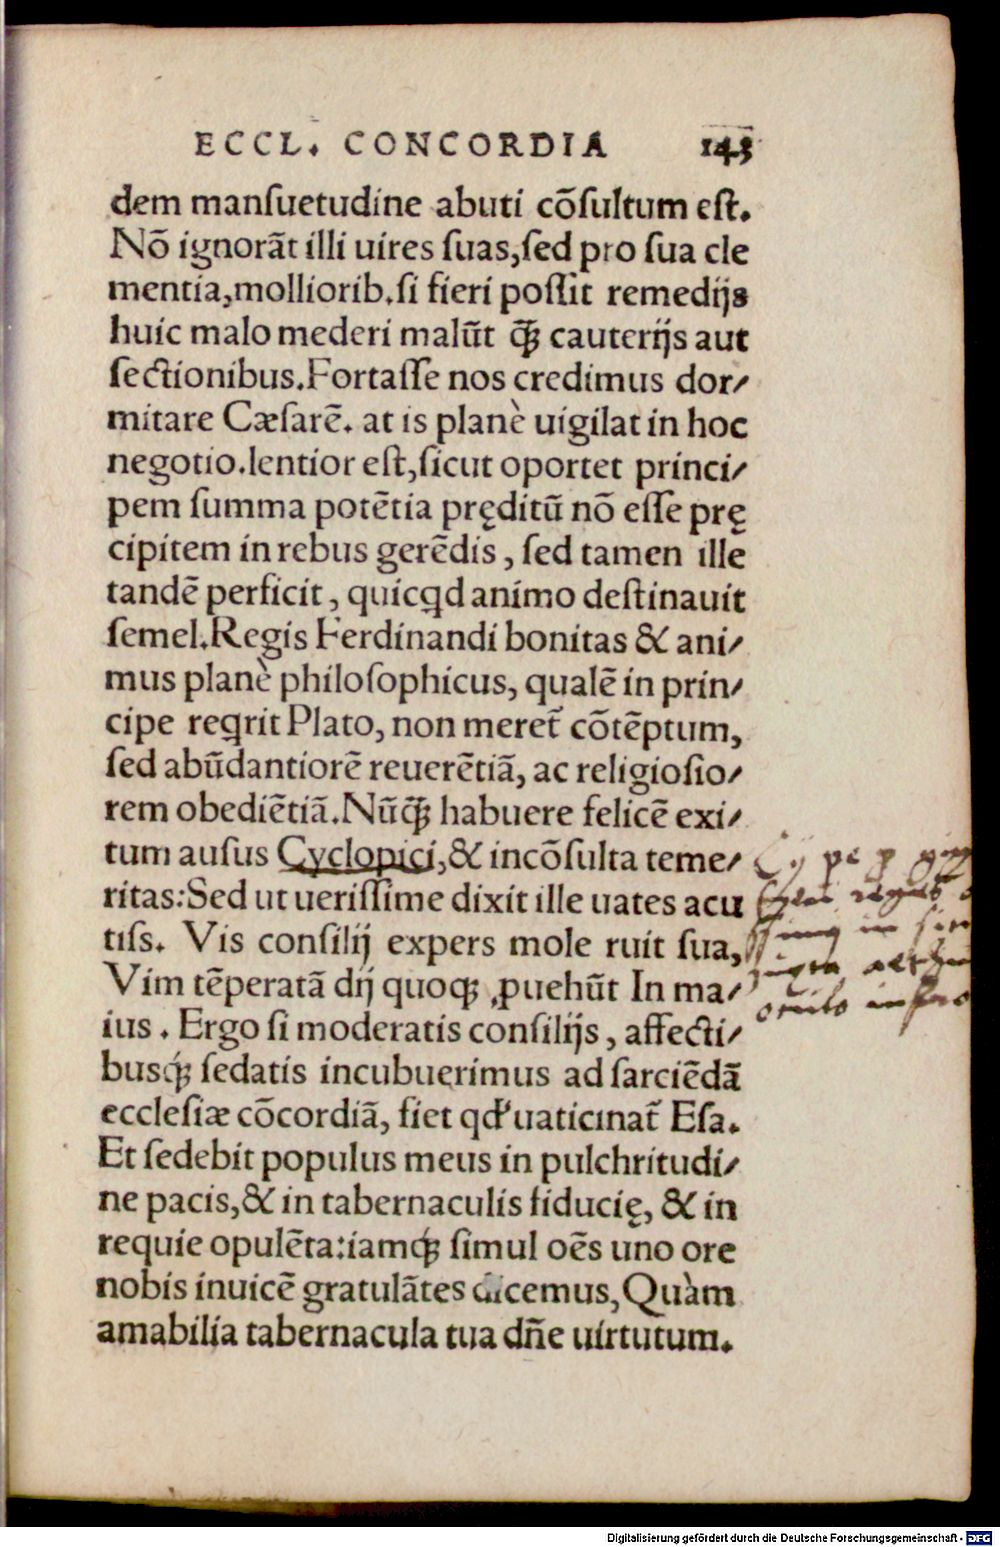 ECCL. CONCORDIA 143
dem manſuetudine abuti cōſultum eſt.
Nō ignorāt illi uires ſuas,ſed pro ſua cle
mentia,molliorib.ſi fieri poſſit remedijs
huic malo mederi malūt q̄ꝫ cauterijs aut
ſectionibus.Fortaſſe nos credimus dor/
mitare Cæſarē. at is planè uigilat in hoc
negotio.lentior eſt,ſicut oportet princi/
pem ſumma potētia pręditū nō eſſe prę
cipitem in rebus gerēdis, ſed tamen ille
tandē perficit, quicꝗd animo deſtinauit
ſemel.Regis Ferdinandi bonitas & ani/
mus planè philoſophicus, qualē in prin/
cipe reꝗrit Plato, non meret̄ cōtēptum,
ſed abūdantiorē reuerētiā, ac religioſio/
rem obediētiā.Nūq̄ꝫ habuere felicē exi/
tum ausus Cyclopici,& incōſulta teme/
ritas:Sed ut ueriſſime dixit ille uates acu
tiſs. Vis conſilij expers mole ruit ſua,
Vim tēperatā dij quoqꝫ ꝓuehūt In ma/
ius. Ergo ſi moderatis conſilijs, affecti/
busq́ꝫ ſedatis incubuerimus ad ſarciēdā
eccleſiæ cōcordiā, fiet qd' uaticinat̄ Eſa.
Et ſedebit populus meus in pulchritudi/
ne pacis,& in tabernaculis fiducię, & in
requie opulēta:iamq́ꝫ ſimul oēs uno ore
nobis inuicē gratulātes dicemus,Quàm
amabilia tabernacula tua dñe uirtutum.
Digitalisierung gefördert durch die Deutsche Forschungsgemeinschaft - DFG